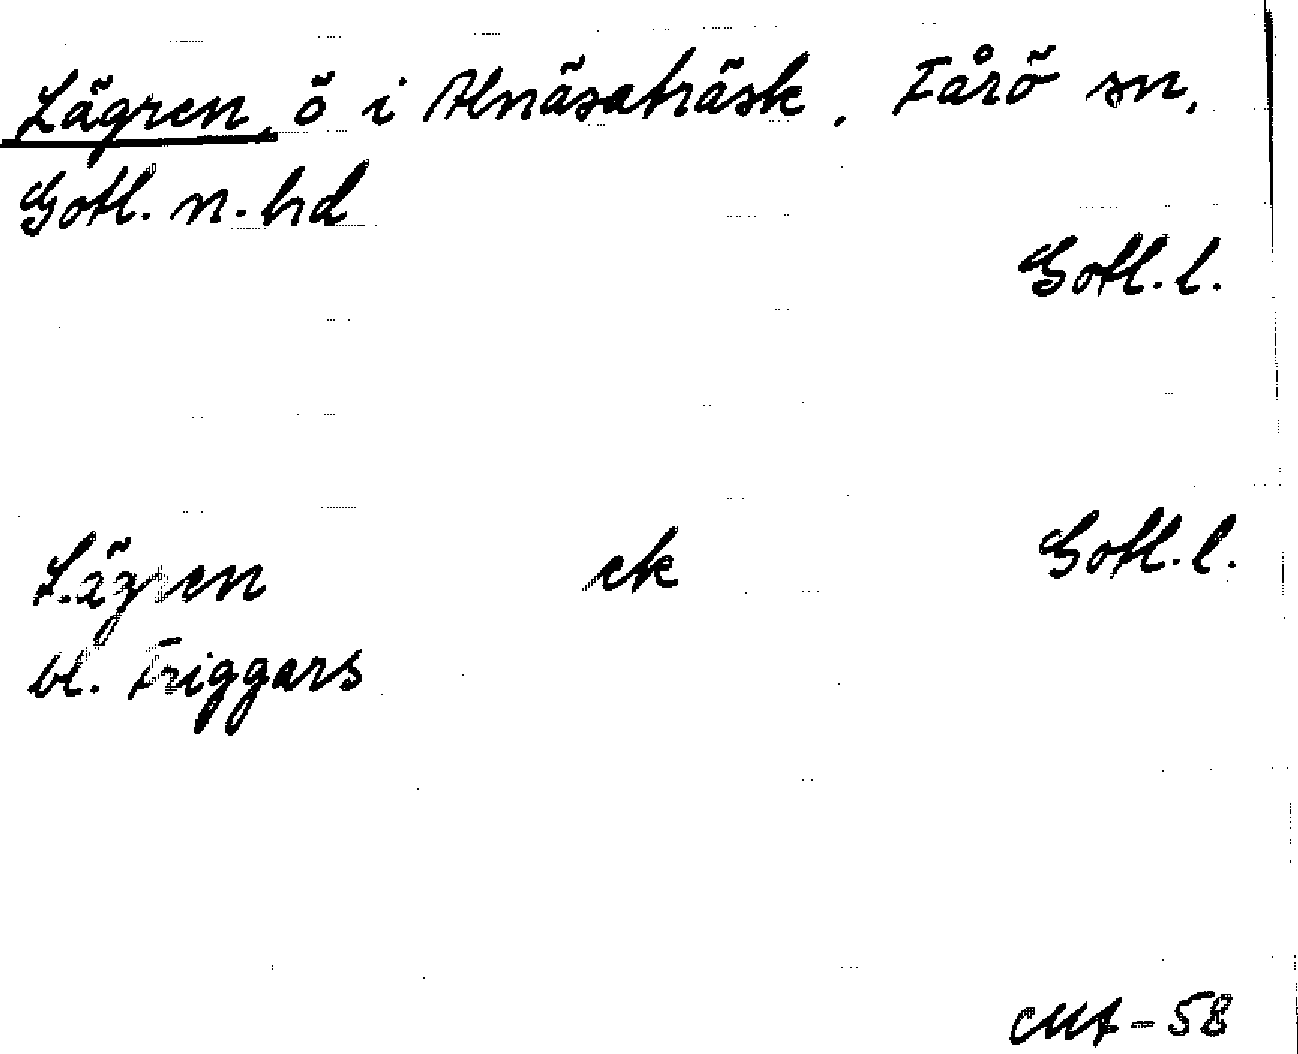 Lägren, ö i Alnäsaträsk. Fårö sn,
Gotl. n. hd
Gotl. l.
Lägren ek Gotl. l.
bl. Friggars
CMA-58